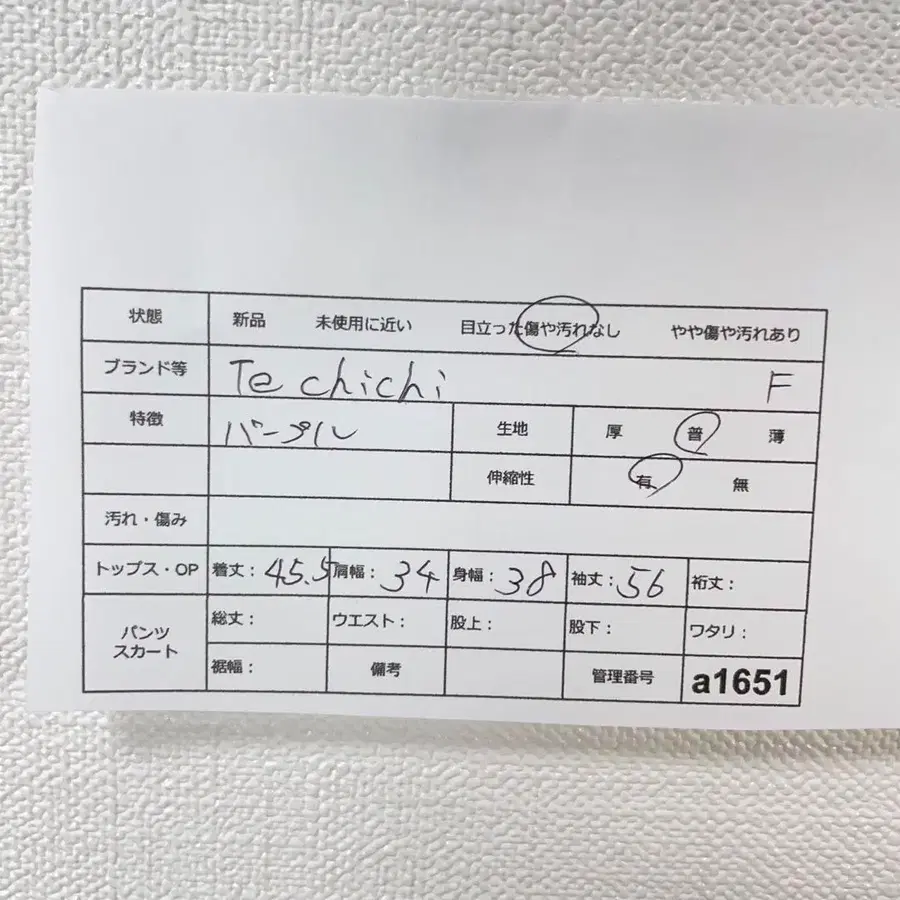 状態 新品 未使用に近い 目立った傷や汚れなし やや傷や汚れあり
ブランド等 Te chichi F
特徴 パープル 生地 厚 普 薄
伸縮性 有 無
汚れ・傷み
トップス・OP 着丈: 45.5 肩幅: 34 身幅: 38 袖丈: 56 裄丈:
パンツ スカート 総丈: ウエスト: 股上: 股下: ワタリ:
裾幅: 備考 管理番号 a1651